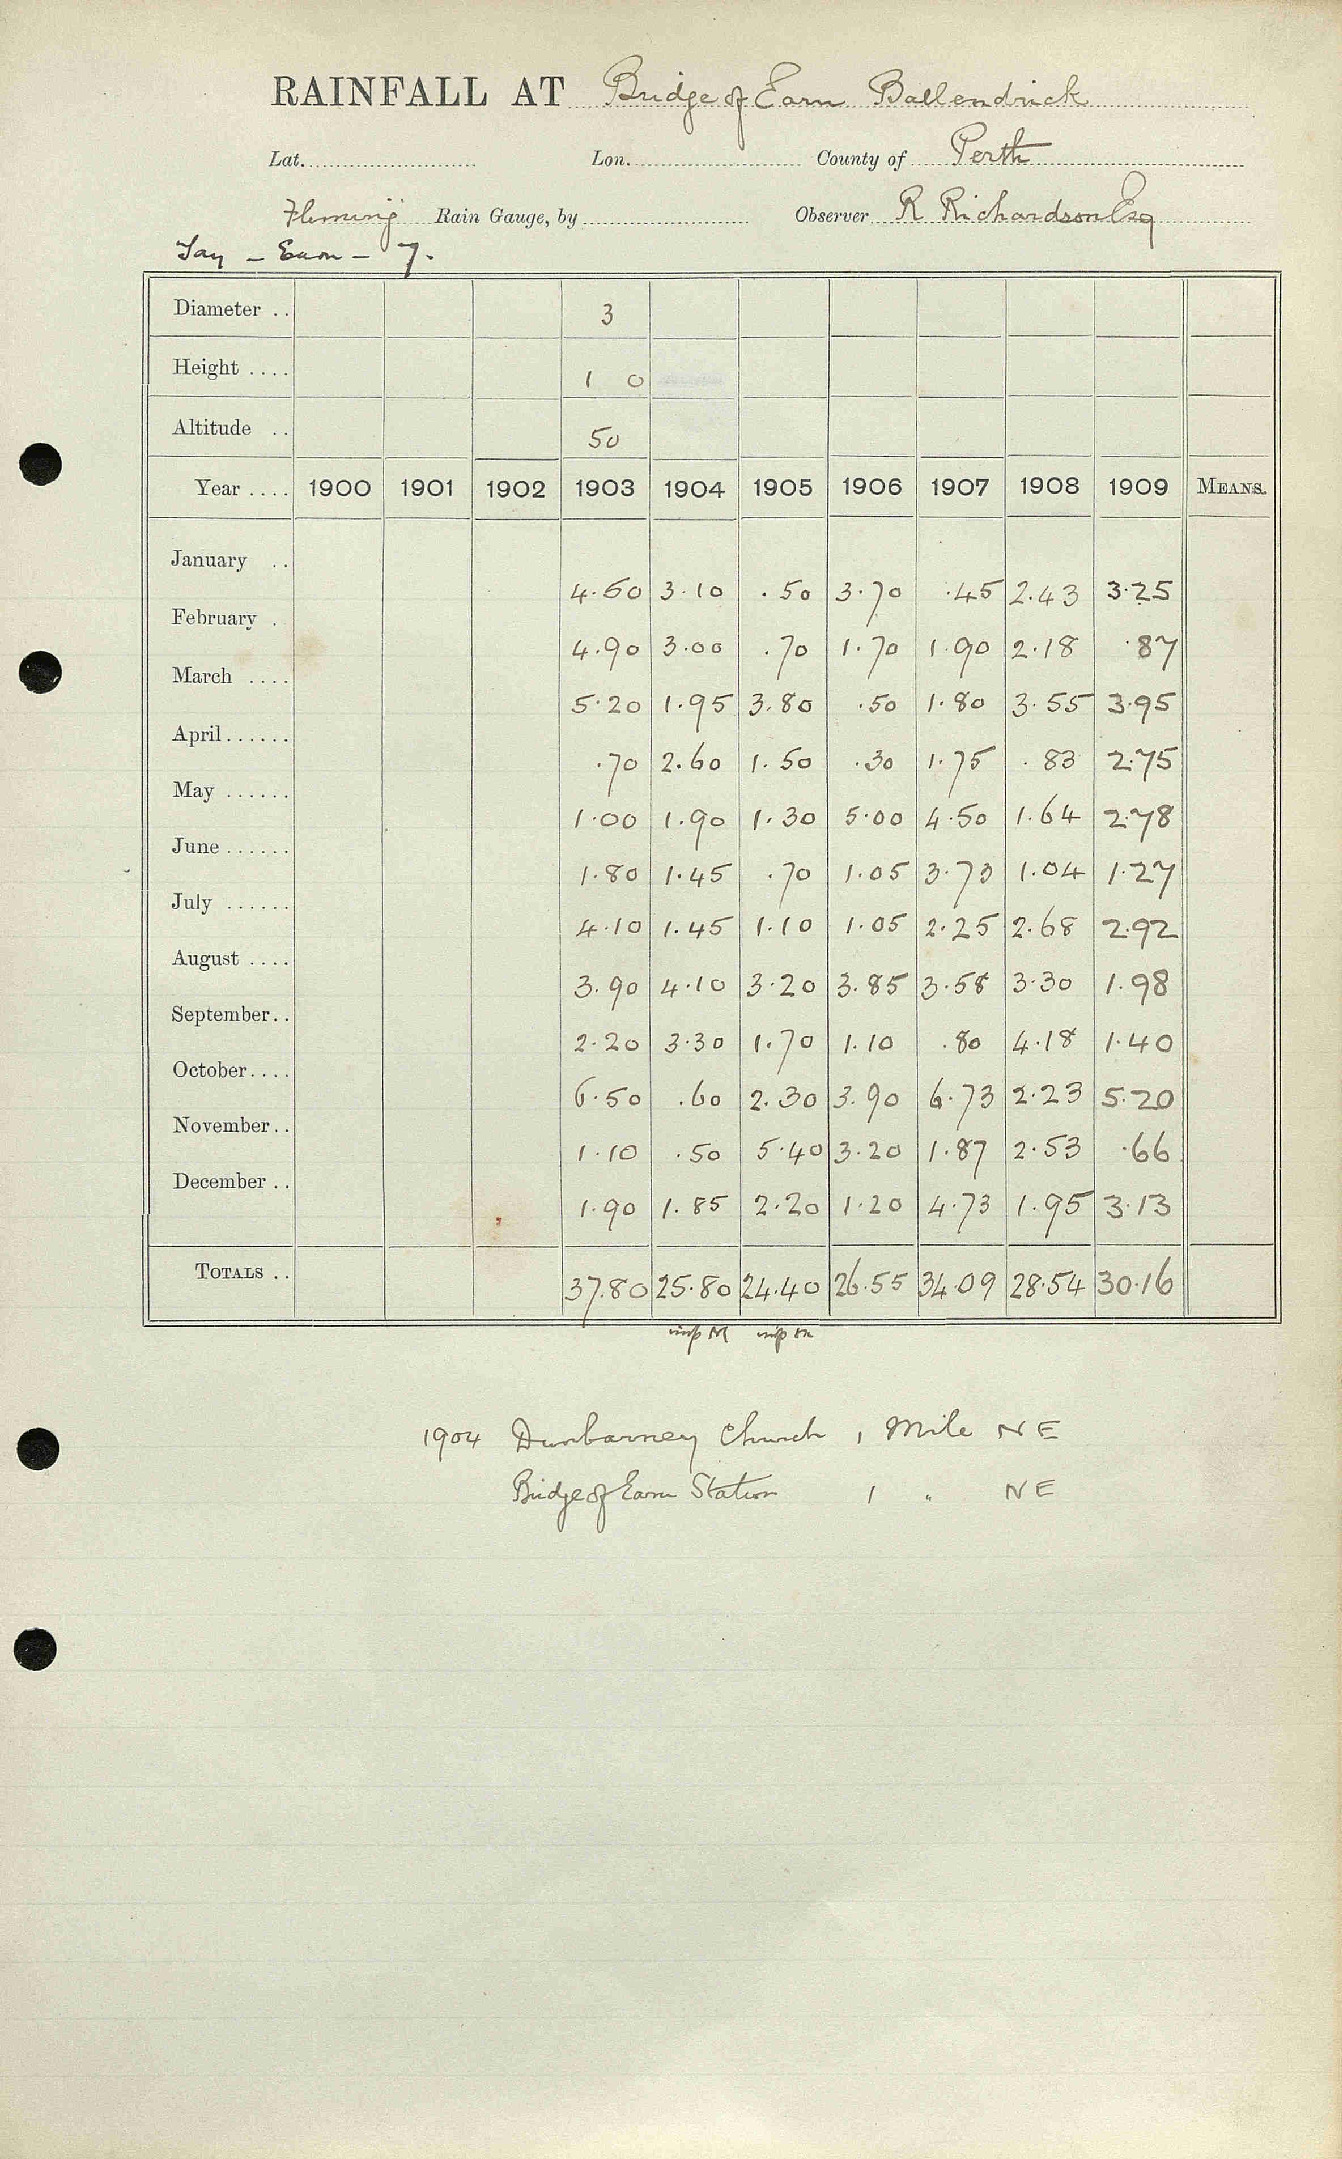 RAINFALL AT Bridge of Earn Ballendrick
Lat. Lon. County of Perth
Fleming Rain Gauge, by Observer R Richardson Esq
Tay - Earn - 7.
Diameter .. 3
Height .... 1 0
Altitude .. 50
Year .... 1900 1901 1902 1903 1904 1905 1906 1907 1908 1909 MEANS.
January .. 4.50 3.10 .50 3.70 .45 2.43 3.25
February . 4.90 3.00 .70 1.70 1.90 2.18 .87
March .... 5.20 1.95 3.80 .50 1.80 3.55 3.95
April...... .70 2.60 1.50 .30 1.75 .83 2.75
May ...... 1.00 1.90 1.30 5.00 4.50 1.64 2.78
June ...... 1.80 1.45 .70 1.05 3.73 1.04 1.27
July ...... 4.10 1.45 1.10 1.05 2.25 2.68 2.92
August .... 3.90 4.10 3.20 3.85 3.58 3.30 1.98
September.. 2.20 3.30 1.70 1.10 .80 4.18 1.40
October.... 6.50 .60 2.30 3.90 6.73 2.23 5.20
November.. 1.10 .50 5.40 3.20 1.87 2.53 .66
December .. 1.90 1.85 2.20 1.20 4.73 1.95 3.13
TOTALS .. 37.80 25.80 24.40 26.55 34.09 28.54 30.16
1904 Dunbarney Church 1 Mile NE
Bridge of Earn Station 1 " NE